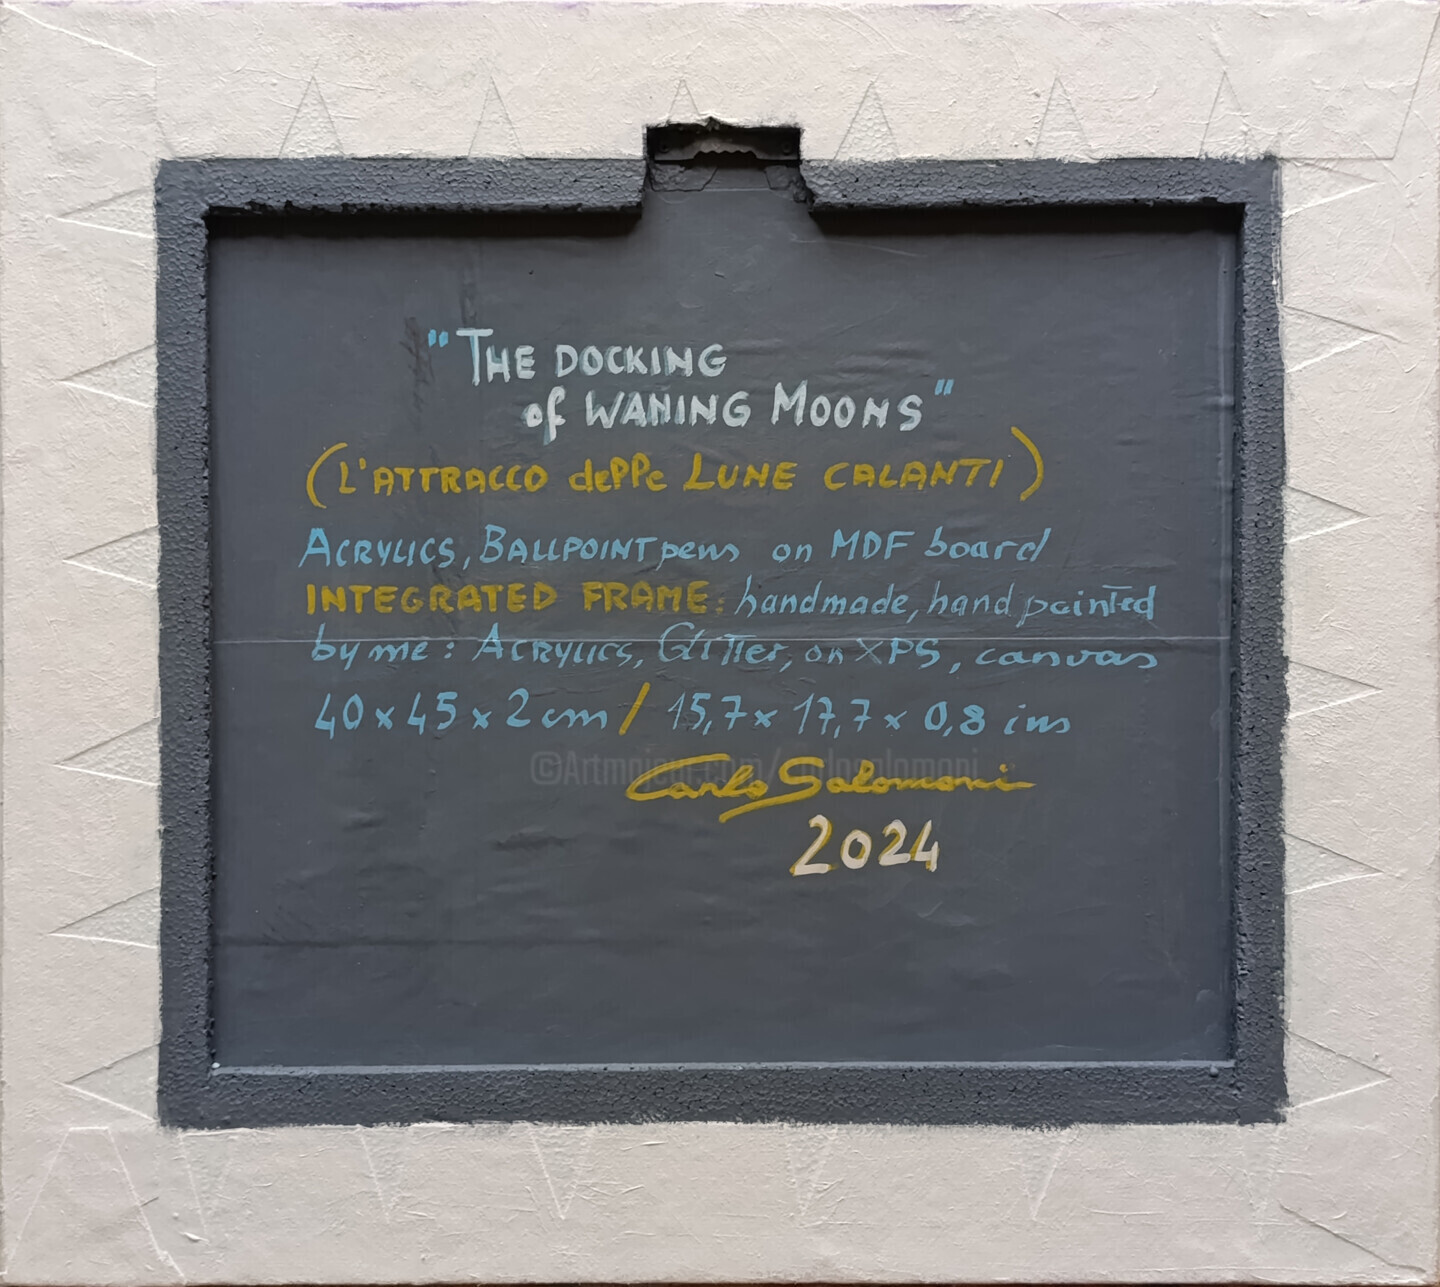 "THE DOCKING
of WANING MOONS"
(L'ATTRACCO delle LUNE CALANTI)
ACRYLICS, BALLPOINT pens on MDF board
INTEGRATED FRAME: handmade, hand painted
by me: ACRYLICS, GLITTer, on XPS, canvas
40 x 45 x 2 cm / 15,7 x 17,7 x 0,8 ins
©Artmajeur.com/carlosalomoni
Carlo Salomoni
2024